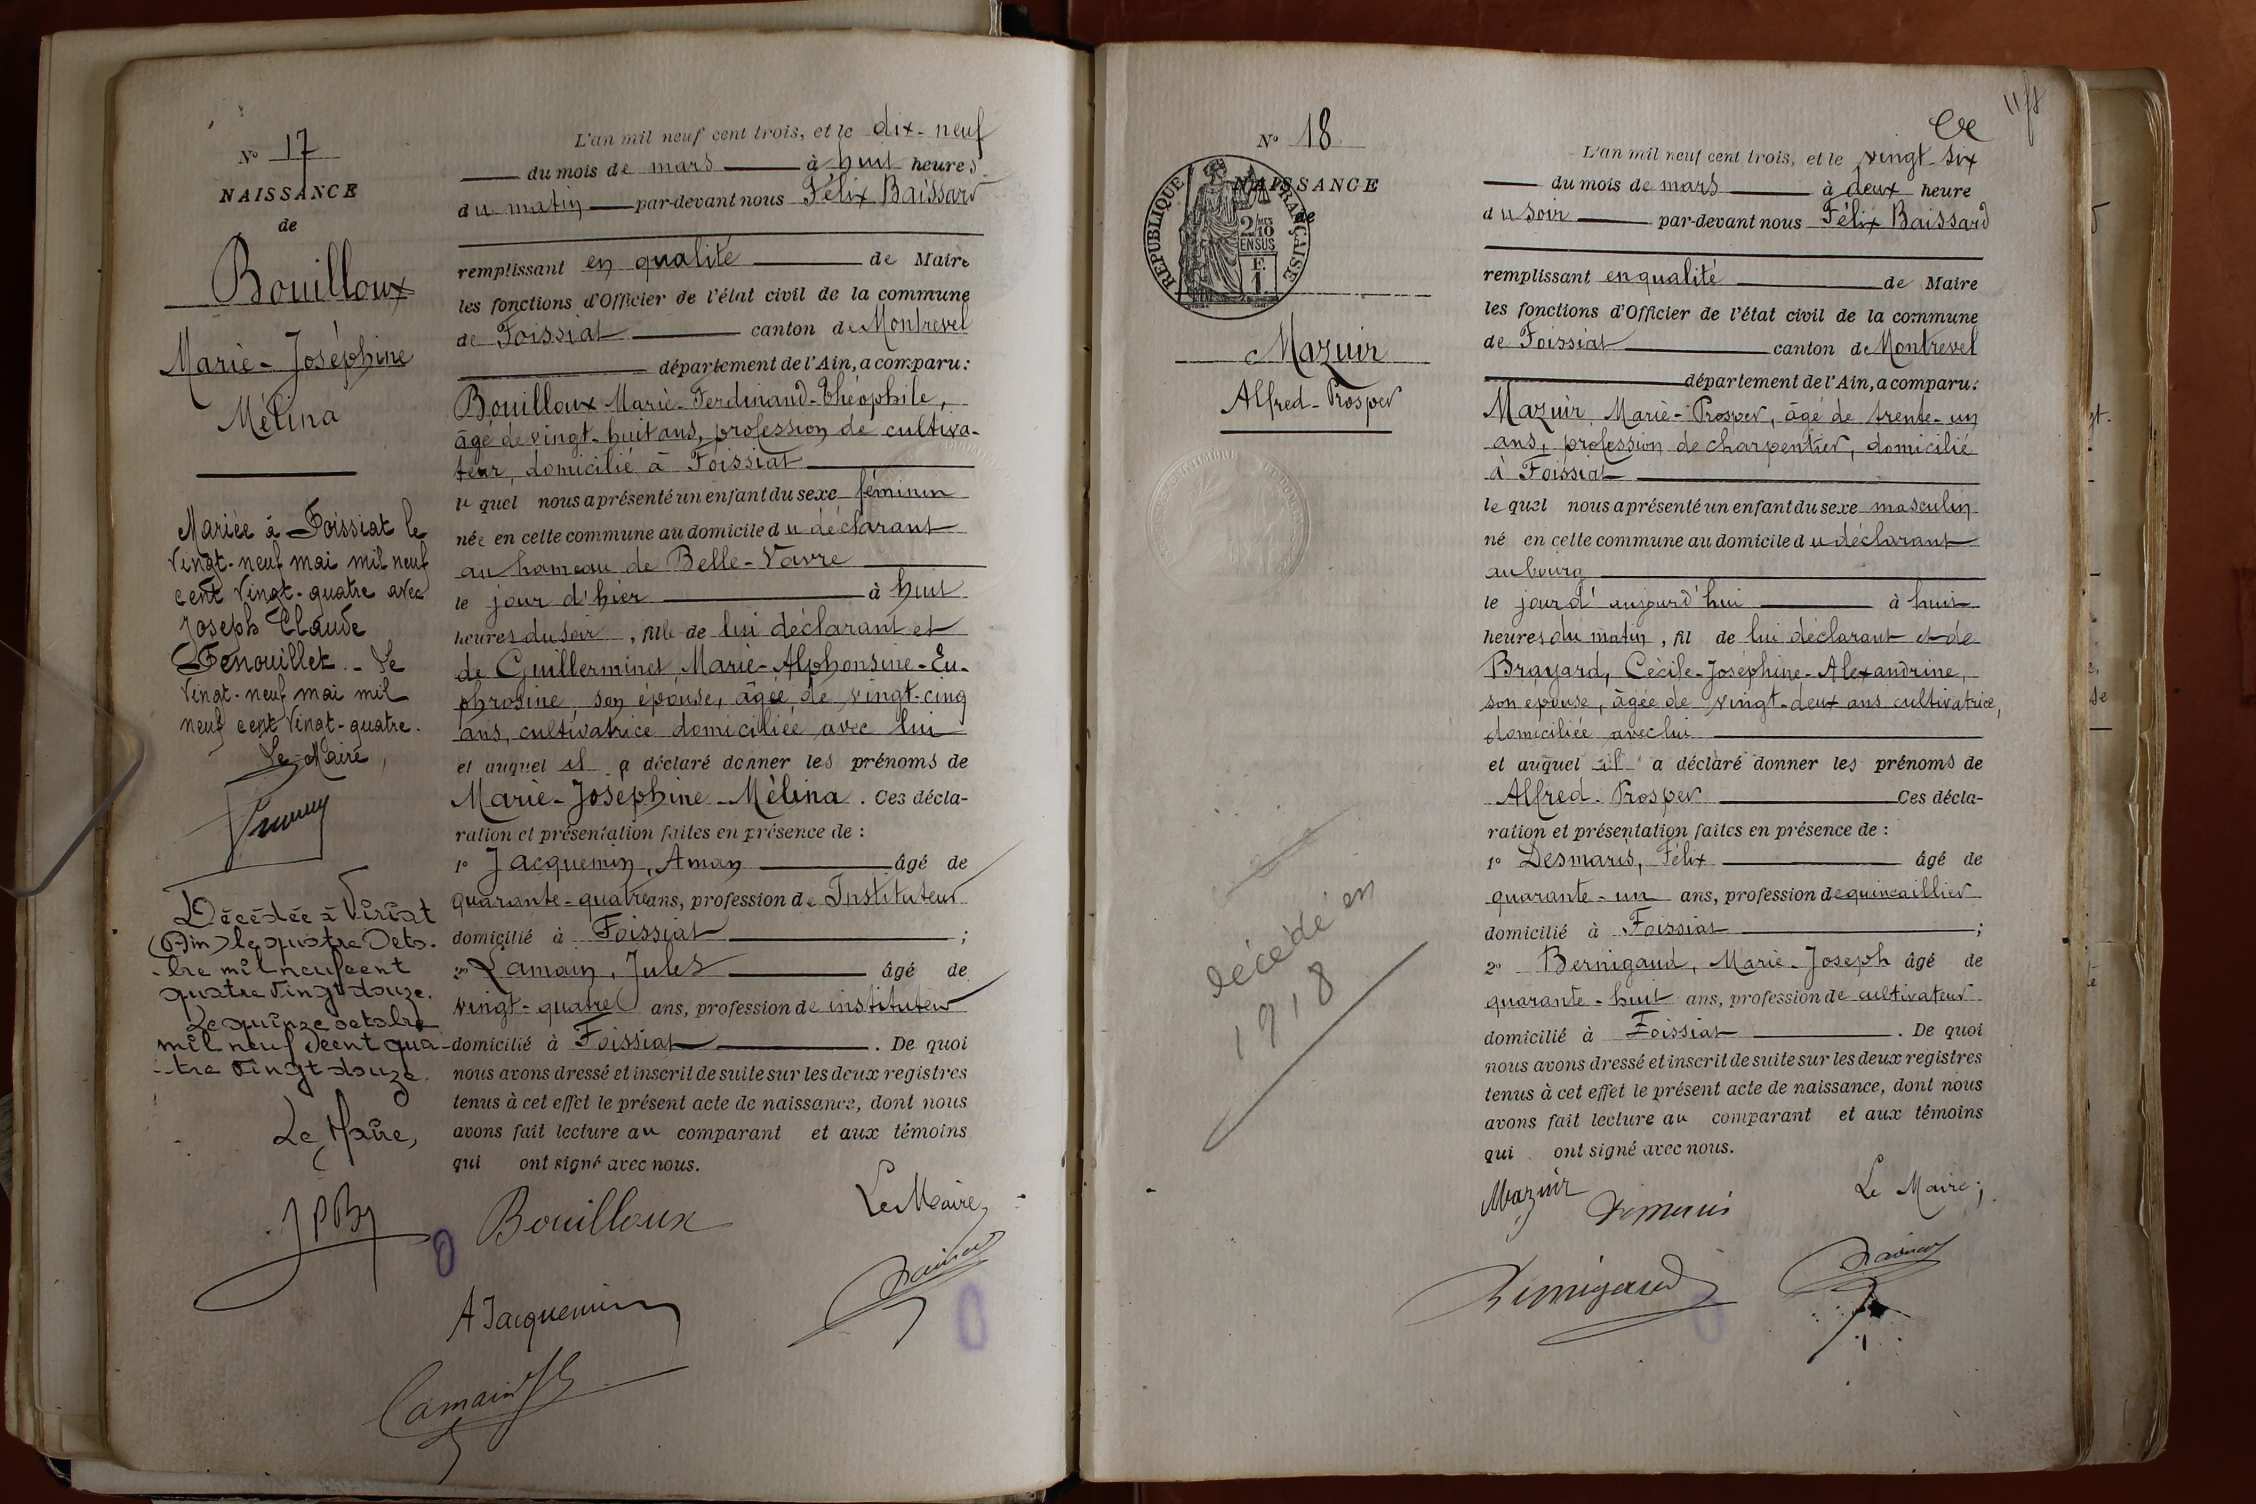 N° 17
NAISSANCE
de
Bouilloux
Marie-Joséphine
Mélina
Mariée à Foissiat le
vingt-neuf mai mil neuf
cent vingt-quatre avec
Joseph Claude
Fenouillet. - Le
vingt-neuf mai mil
neuf cent vingt-quatre.
Le Maire,
Décédée à Viriat
(Ain) le quatre Octo-
-bre mil neuf cent
quatre vingt douze.
Le quinze octobre
mil neuf cent qua-
-tre vingt douze.
Le Maire,
L'an mil neuf cent trois, et le dix-neuf
du mois de mars à huit heures
du matin par-devant nous Félix Baissard
remplissant en qualité de Maire
les fonctions d'Officier de l'état civil de la commune
de Foissiat canton de Montrevel
département de l'Ain, a comparu:
Bouilloux Marie-Ferdinand-Théophile,
âgé de vingt-huit ans, profession de cultiva-
teur, domicilié à Foissiat
le quel nous a présenté un enfant du sexe féminin
née en cette commune au domicile du déclarant
au hameau de Belle-Vavre
le jour d'hier à huit
heures du soir, fille de lui déclarant et
de Guillerminet Marie-Alphonsine-Eu-
phrosine, son épouse, âgée de vingt-cinq
ans, cultivatrice domiciliée avec lui
et auquel il a déclaré donner les prénoms de
Marie-Joséphine-Mélina. Ces décla-
ration et présentation faites en présence de :
1° Jacquemin, Aman âgé de
quarante-quatre ans, profession de Instituteur
domicilié à Foissiat ;
2° Lamain, Jules âgé de
vingt-quatre ans, profession de instituteur
domicilié à Foissiat . De quoi
nous avons dressé et inscrit de suite sur les deux registres
tenus à cet effet le présent acte de naissance, dont nous
avons fait lecture au comparant et aux témoins
qui ont signé avec nous.
Bouilloux
Le Maire,
A Jacquemin
Lamain J
N° 18
NAISSANCE
de
REPUBLIQUE FRANÇAISE
2/10
EN SUS
F.
1
Mazuir
Alfred-Prosper
décédé en
1918
L'an mil neuf cent trois, et le vingt-six
du mois de mars à deux heure
du soir par-devant nous Félix Baissard
remplissant en qualité de Maire
les fonctions d'Officier de l'état civil de la commune
de Foissiat canton de Montrevel
département de l'Ain, a comparu:
Mazuir Marie-Prosper, âgé de trente-un
ans, profession de charpentier, domicilié
à Foissiat
le quel nous a présenté un enfant du sexe masculin
né en cette commune au domicile du déclarant
au bourg
le jour d'aujourd'hui à huit
heures du matin, fil de lui déclarant et de
Brayard, Cécile-Joséphine-Alexandrine,
son épouse, âgée de vingt-deux ans cultivatrice,
domiciliée avec lui
et auquel il a déclaré donner les prénoms de
Alfred-Prosper Ces décla-
ration et présentation faites en présence de :
1° Desmaris, Félix âgé de
quarante-un ans, profession de quincaillier
domicilié à Foissiat ;
2° Bernigaud, Marie-Joseph âgé de
quarante-huit ans, profession de cultivateur
domicilié à Foissiat . De quoi
nous avons dressé et inscrit de suite sur les deux registres
tenus à cet effet le présent acte de naissance, dont nous
avons fait lecture au comparant et aux témoins
qui ont signé avec nous.
Mazuir
Le Maire;
Bernigaud